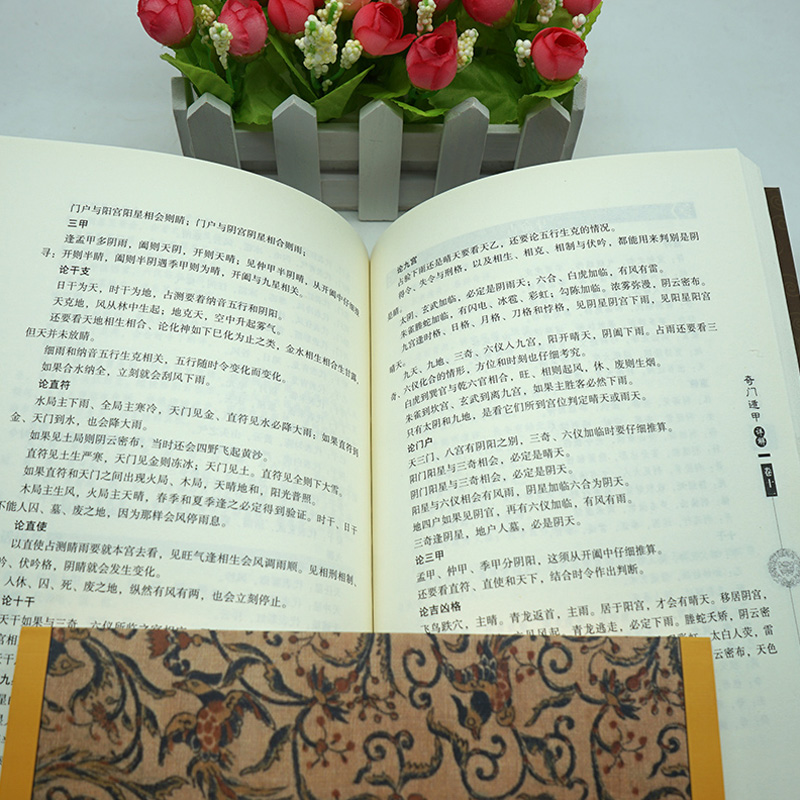 门户与阳宫阳星相会则晴；门户与阴宫阴星相合则雨；
三甲
逢孟甲多阴雨，阖则天阴，开则天晴；见仲甲半阴晴，从开阖中仔细推
寻：开则半晴，阖则半阴遇季甲则为晴，开阖与九星相关。
论干支
日干为天，时干为地，占测要看纳音五行和阴阳。
天克地，风从林中生起；地克天，空中升起雾气。
还要看天地相生相合、论化神如下巳化为止之类，金水相生相合生甘露，
但天并未放晴。
细雨和纳音五行生克相关，五行随时令变化而变化。
如果合水纳全，立刻就会刮风下雨。
论直符
水局主下雨、全局主寒冷，天门见金、直符见水必降大雨；如果直符到
金、天门到水，也会降大雨。
如果见土局则阴云密布，当时还会四野飞起黄沙。
直符见土生严寒，天门见金则冻冰；天门见土。直符见全则下大雪。
如果直符和天门之间出现火局、木局，天晴地和，阳光普照。
木局主生风，火局主天晴，春季和夏季逢之必定得到验证。时干、日干
不能入囚、墓、废之地，因为那样会风停雨息。
论直使
以直使占测晴雨要就本宫去看，见旺气逢相生会风调雨顺。见相刑相制、
吟、伏吟格，阴晴就会发生变化。
人休、囚、死、废之地，纵然有风有两，也会立刻停止。
论十干
天干如果与三奇、六仪所临之宫相
论九宫
占验下雨还是晴天要看天乙，还要论五行生克的情况。
得令、失令与刑格，以及相生、相克、相制与伏吟，都能用来判别是阴
是晴。
太阴、玄武加临，必定是阴雨天；六合、白虎加临，有风有雷。
朱雀螣蛇加临，有闪电、冰雹、彩虹；勾陈加临。浓雾弥漫，阴云密布。
九宫逢时格、日格、月格、刀格和悖格，见阴星阴宫下雨，见阳星阳宫
晴天。
九天、九地、三奇、六仪人九宫，阳开晴天，阴阖下雨。占雨还要看三
奇、六仪化合的情形，方位和时刻也仔细考究。
白虎到巽宫与乾六宫相合，旺、相则起风，休、废则生烟。
朱雀到坎宫、玄武到离九宫，如果主胜客必然下雨。
只有太阴和九地，是看它们所到宫位判定晴天或雨天。
论门户
天三门、八宫有阴阳之别，三奇、六仪加临时要仔细推算。
阳门阳星与三奇相会，必定是晴天。
阴门阳星与三奇相会，必定是阴天。
阳星与六仪相会有风雨，阴星加临六合为阴天。
地四户如果见阴宫，再有六仪加临，有风有雨。
三奇逢阴星，地户人墓，必是阴天。
论三甲
孟甲、仲甲、季甲分阴阳，这须从开阖中仔细推算。
还要看直符、直使和天干，结合时令作出判断。
论吉凶格
飞鸟跌穴，主晴。青龙返首，主雨。居于阳宫，才会有晴天。移居阴宫，
青龙逃走，必定下雨。螣蛇天矫，阴云密
太白人荧，雷
云密布，天色
奇门遁甲
详解
卷十二